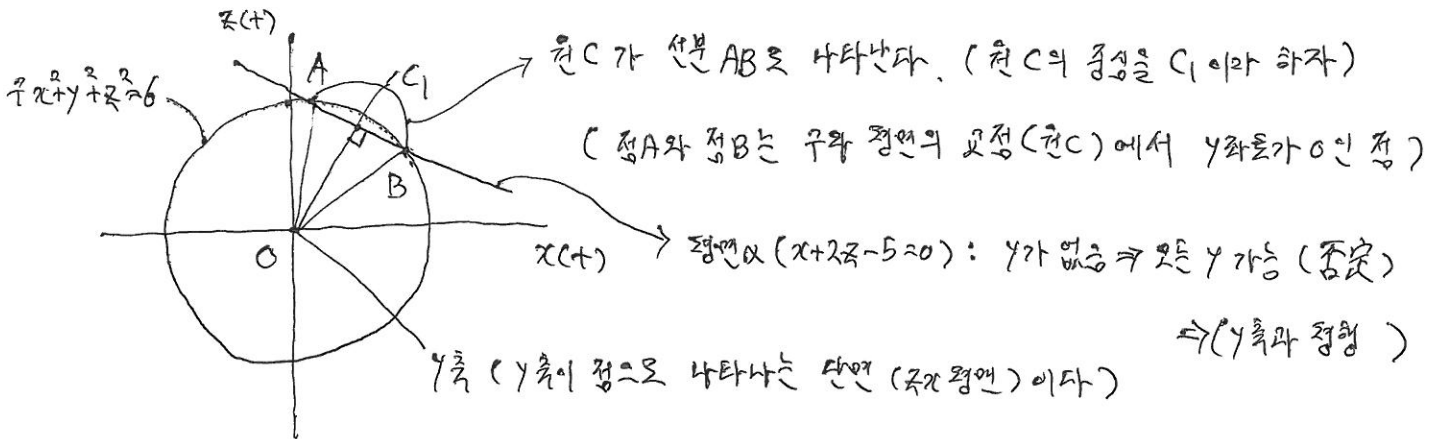 z(+)
구 x²+y²+z²=6
A
C₁
B
O
x(+)
원C가 선분AB로 나타난다. (원C의 중심을 C₁이라 하자)
(점A와 점B는 구와 평면의 교점(원C)에서 y좌표가 0인 점)
평면α(x+2z-5=0) : y가 없음 ⇒ 모든 y 가능 (否定)
⇒(y축과 평행)
y축 (y축이 점으로 나타나는 단면 (zx평면)이다)